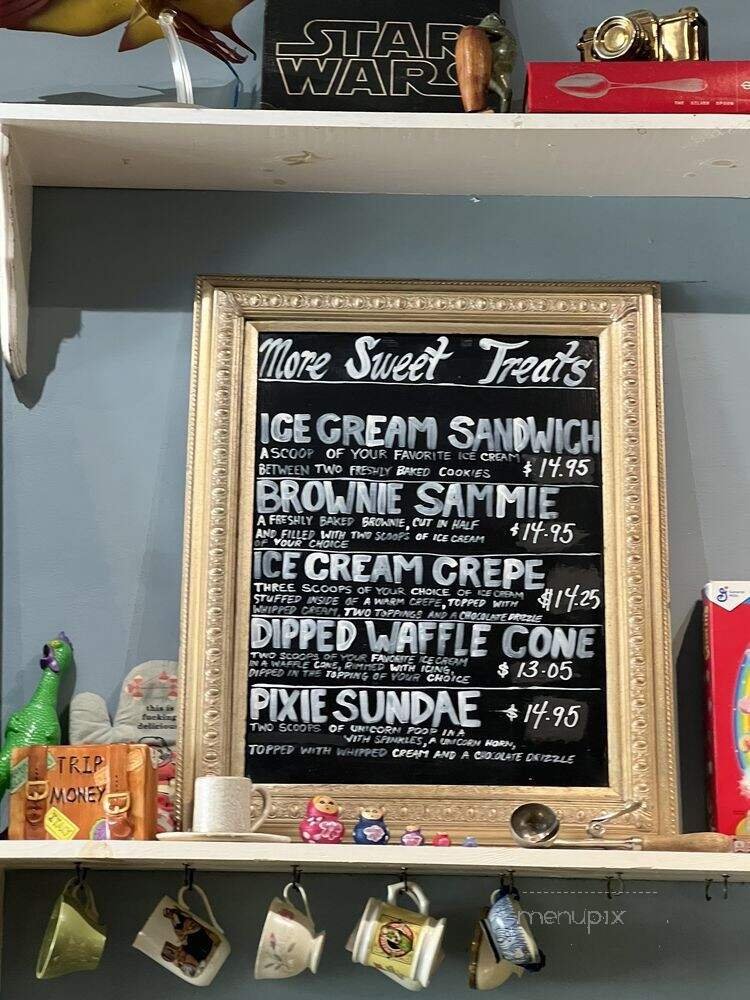 STAR
WARS
THE SILVER SPOON
More Sweet Treats
ICE CREAM SANDWICH
A SCOOP OF YOUR FAVORITE ICE CREAM
BETWEEN TWO FRESHLY BAKED COOKIES $14.95
BROWNIE SAMMIE
A FRESHLY BAKED BROWNIE, CUT IN HALF
AND FILLED WITH TWO SCOOPS OF ICE CREAM $14.95
OF YOUR CHOICE
ICE CREAM CREPE
THREE SCOOPS OF YOUR CHOICE OF ICE CREAM
STUFFED INSIDE OF A WARM CREPE, TOPPED WITH $14.25
WHIPPED CREAM, TWO TOPPINGS AND A CHOCOLATE DRIZZLE
DIPPED WAFFLE CONE
TWO SCOOPS OF YOUR FAVORITE ICE CREAM
IN A WAFFLE CONE, RIMMED WITH ICING, $13.05
DIPPED IN THE TOPPING OF YOUR CHOICE
PIXIE SUNDAE $14.95
TWO SCOOPS OF UNICORN POOP IN A
WITH SPINKLES, A UNICORN HORN,
TOPPED WITH WHIPPED CREAM AND A CHOCOLATE DRIZZLE
this is
fucking
delicious
TRIP
MONEY
menupix